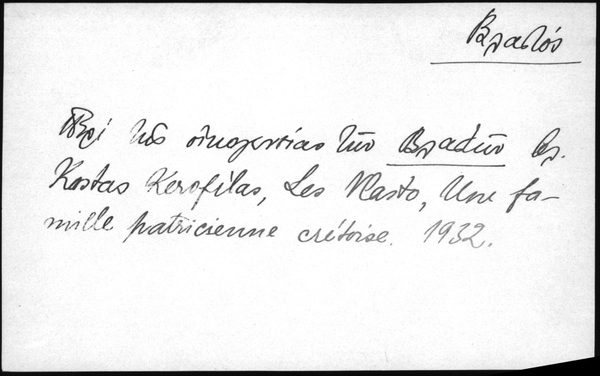 Βλαστός
Περὶ τῆς οἰκογενείας τῶν Βλαστῶν βλ.
Kostas Kerofilas, Les Vlasto, Une fa-
mille patricienne crétoise. 1932.